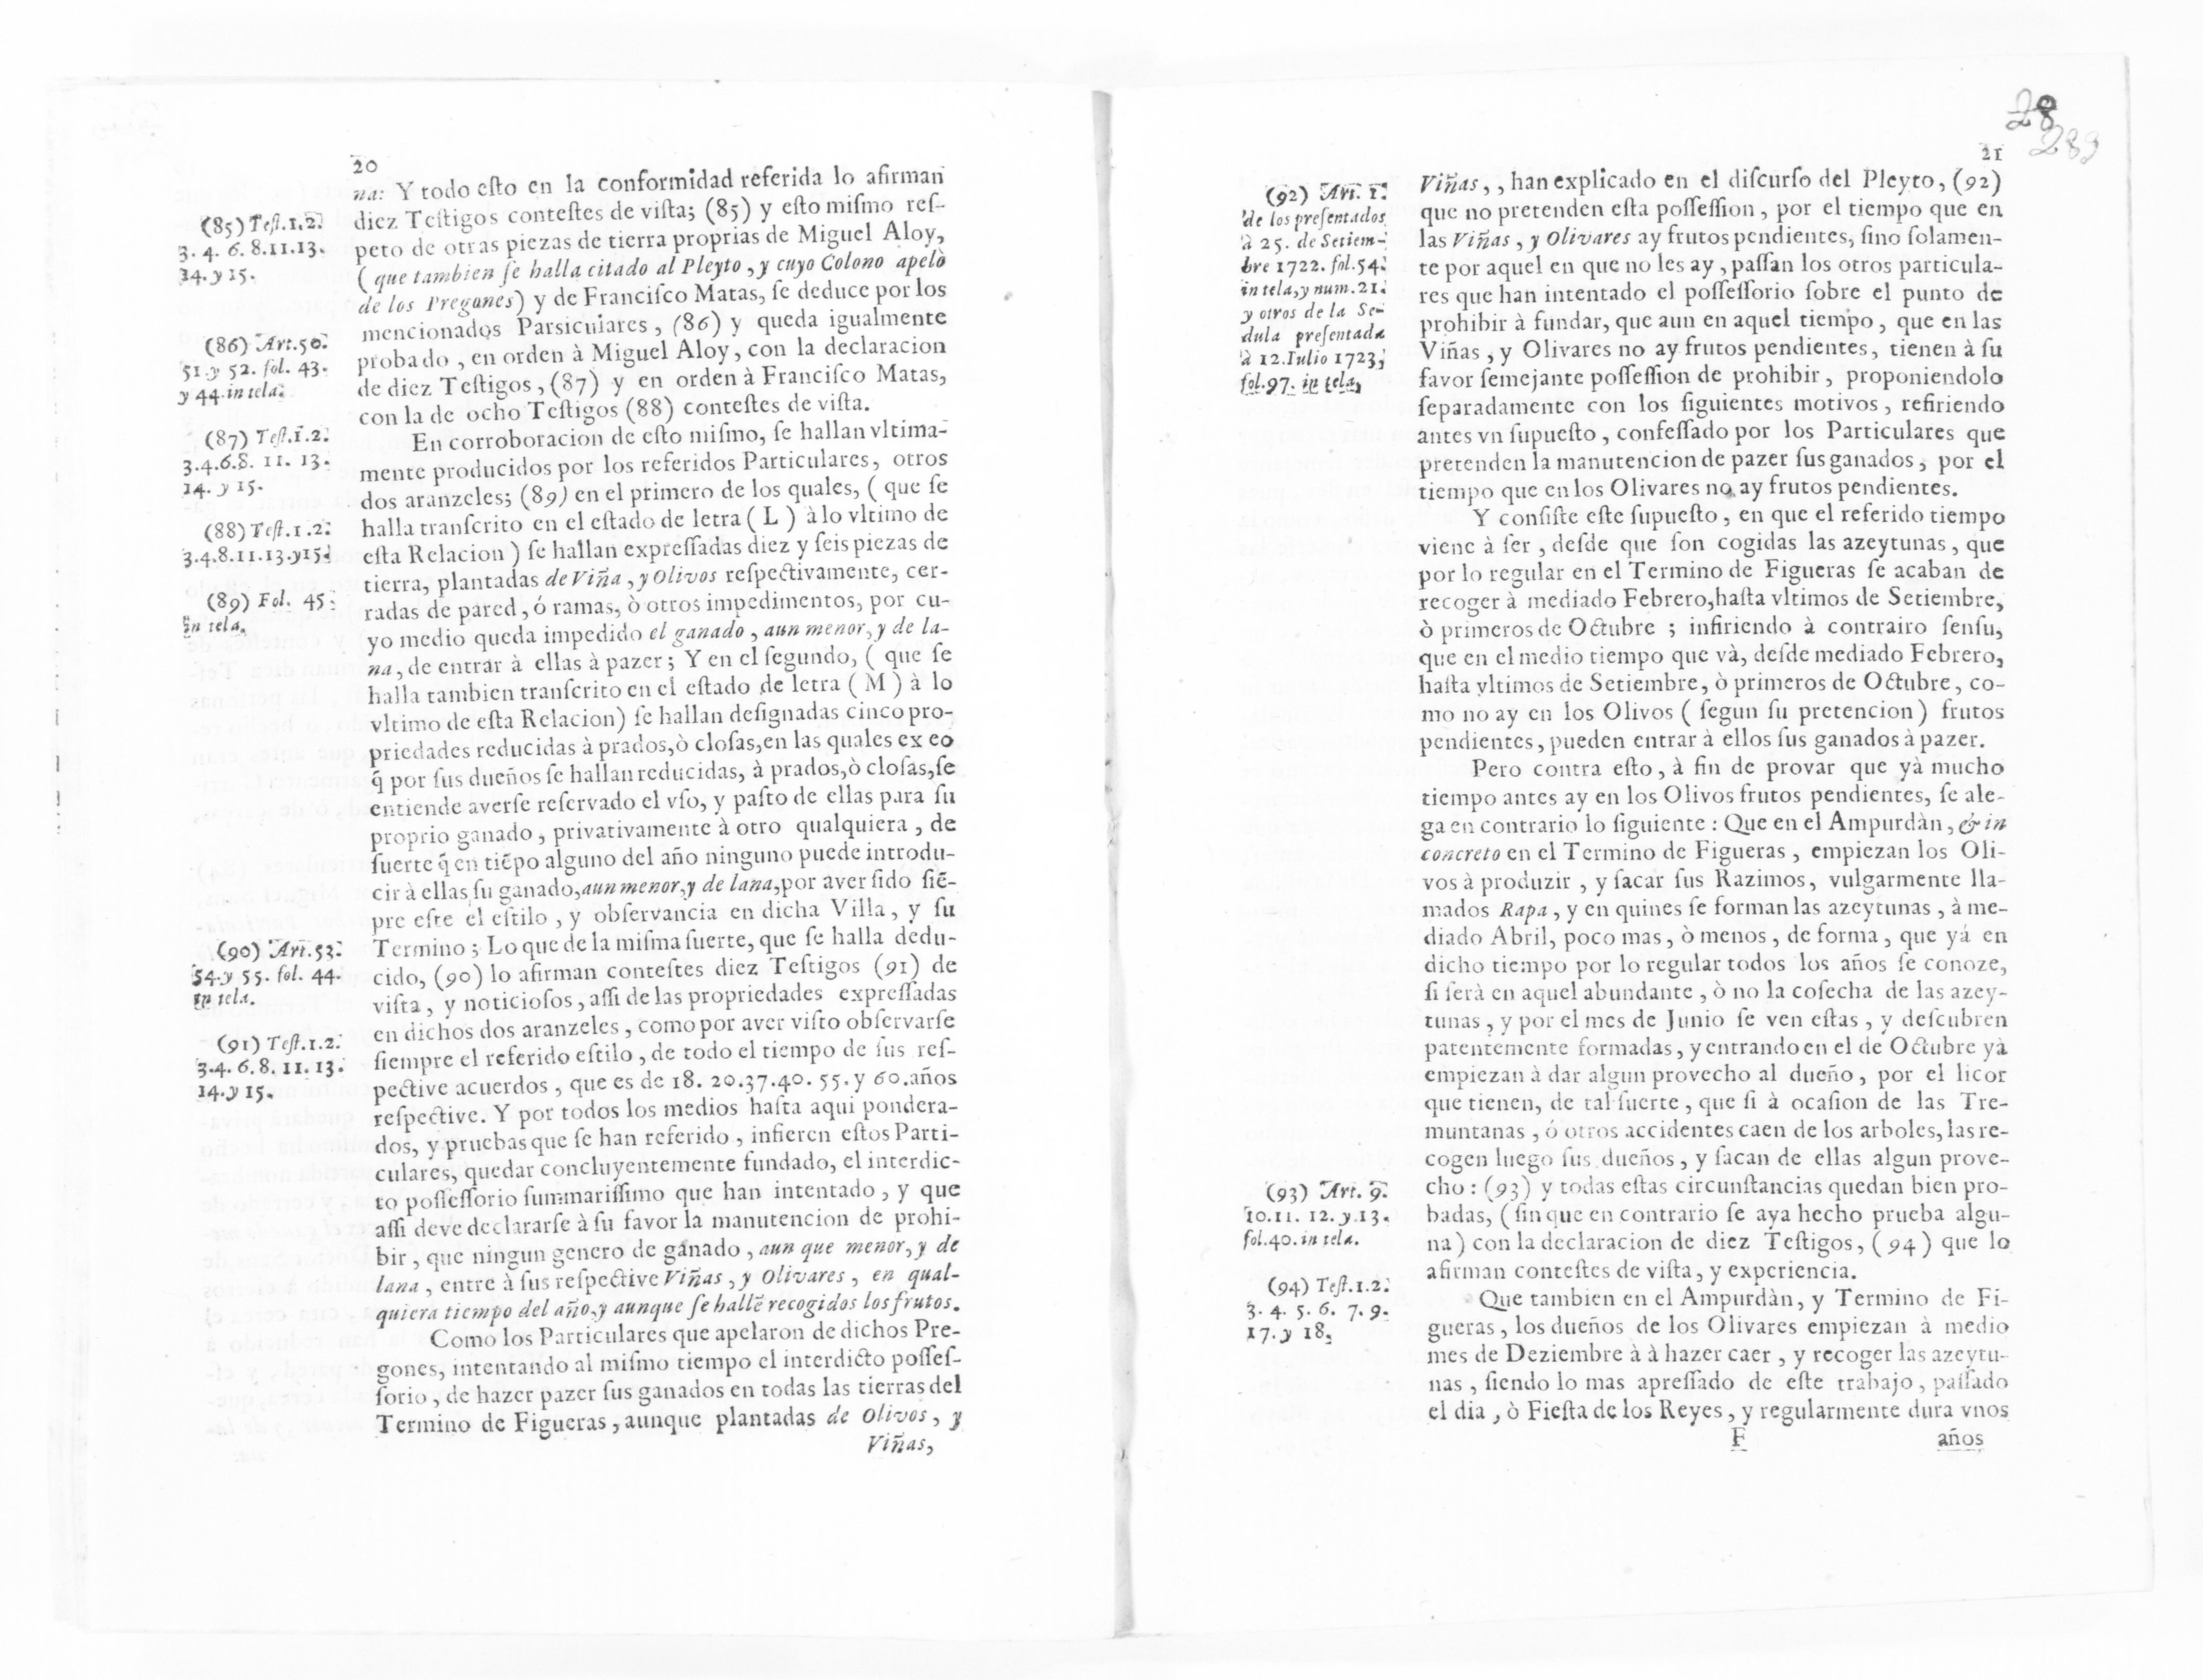 20
na: Y todo esto en la conformidad referida lo afirman
diez Testigos contestes de vista; (85) y esto mismo res-
peto de otras piezas de tierra proprias de Miguel Aloy,
( que tambien se halla citado al Pleyto, y cuyo Colono apelò
de los Pregones) y de Francisco Matas, se deduce por los
mencionados Parsiculares, (86) y queda igualmente
probado, en orden à Miguel Aloy, con la declaracion
de diez Testigos, (87) y en orden à Francisco Matas,
con la de ocho Testigos (88) contestes de vista.
En corroboracion de esto mismo, se hallan vltima-
mente producidos por los referidos Particulares, otros
dos aranzeles; (89) en el primero de los quales, ( que se
halla transcrito en el estado de letra ( L ) à lo vltimo de
esta Relacion ) se hallan expressadas diez y seis piezas de
tierra, plantadas de Viña, y Olivos respectivamente, cer-
radas de pared, ó ramas, ò otros impedimentos, por cu-
yo medio queda impedido el ganado, aun menor, y de la-
na, de entrar à ellas à pazer; Y en el segundo, ( que se
halla tambien transcrito en el estado de letra ( M ) à lo
vltimo de esta Relacion) se hallan designadas cinco pro-
priedades reducidas à prados, ò closas, en las quales ex eo
q̃ por sus dueños se hallan reducidas, à prados, ò closas, se
entiende averse reservado el vso, y pasto de ellas para su
proprio ganado, privativamente à otro qualquiera, de
suerte q̃ en tiẽpo alguno del año ninguno puede introdu-
cir à ellas su ganado, aun menor, y de lana, por aver sido siẽ-
pre este el estilo, y observancia en dicha Villa, y su
Termino; Lo que de la misma suerte, que se halla dedu-
cido, (90) lo afirman contestes diez Testigos (91) de
vista, y noticiosos, assi de las propriedades expressadas
en dichos dos aranzeles, como por aver visto observarse
siempre el referido estilo, de todo el tiempo de sus res-
pective acuerdos, que es de 18. 20. 37. 40. 55. y 60. años
respective. Y por todos los medios hasta aqui pondera-
dos, y pruebas que se han referido, infieren estos Parti-
culares, quedar concluyentemente fundado, el interdic-
to possessorio summarissimo que han intentado, y que
assi deve declararse à su favor la manutencion de prohi-
bir, que ningun genero de ganado, aun que menor, y de
lana, entre à sus respective Viñas, y Olivares, en qual-
quiera tiempo del año, y aunque se hallẽ recogidos los frutos.
Como los Particulares que apelaron de dichos Pre-
gones, intentando al mismo tiempo el interdicto posses-
sorio, de hazer pazer sus ganados en todas las tierras del
Termino de Figueras, aunque plantadas de Olivos, y
Viñas,
(85) Test. 1. 2.
3. 4. 6. 8. 11. 13.
14. y 15.
(86) Art. 50.
51. y 52. fol. 43.
y 44. in tela.
(87) Test. 1. 2.
3. 4. 6. 8. 11. 13.
14. y 15.
(88) Test. 1. 2.
3. 4. 8. 11. 13. y 15.
(89) Fol. 45.
in tela.
(90) Art. 53.
54. y 55. fol. 44.
in tela.
(91) Test. 1. 2.
3. 4. 6. 8. 11. 13.
14. y 15.
28
283
21
Viñas, , han explicado en el discurso del Pleyto, (92)
que no pretenden esta possession, por el tiempo que en
las Viñas, y Olivares ay frutos pendientes, sino solamen-
te por aquel en que no les ay, passan los otros particula-
res que han intentado el possessorio sobre el punto de
prohibir à fundar, que aun en aquel tiempo, que en las
Viñas, y Olivares no ay frutos pendientes, tienen à su
favor semejante possession de prohibir, proponiendolo
separadamente con los siguientes motivos, refiriendo
antes vn supuesto, confessado por los Particulares que
pretenden la manutencion de pazer sus ganados, por el
tiempo que en los Olivares no ay frutos pendientes.
Y consiste este supuesto, en que el referido tiempo
viene à ser, desde que son cogidas las azeytunas, que
por lo regular en el Termino de Figueras se acaban de
recoger à mediado Febrero, hasta vltimos de Setiembre,
ò primeros de Octubre; infiriendo à contrairo sensu,
que en el medio tiempo que và, desde mediado Febrero,
hasta vltimos de Setiembre, ò primeros de Octubre, co-
mo no ay en los Olivos ( segun su pretencion) frutos
pendientes, pueden entrar à ellos sus ganados à pazer.
Pero contra esto, à fin de provar que yà mucho
tiempo antes ay en los Olivos frutos pendientes, se ale-
ga en contrario lo siguiente: Que en el Ampurdàn, & in
concreto en el Termino de Figueras, empiezan los Oli-
vos à produzir, y sacar sus Razimos, vulgarmente lla-
mados Rapa, y en quines se forman las azeytunas, à me-
diado Abril, poco mas, ò menos, de forma, que yá en
dicho tiempo por lo regular todos los años se conoze,
si serà en aquel abundante, ò no la cosecha de las azey-
tunas, y por el mes de Junio se ven estas, y descubren
patentemente formadas, y entrando en el de Octubre yà
empiezan à dar algun provecho al dueño, por el licor
que tienen, de tal suerte, que si à ocasion de las Tre-
muntanas, ó otros accidentes caen de los arboles, las re-
cogen luego sus dueños, y sacan de ellas algun prove-
cho: (93) y todas estas circunstancias quedan bien pro-
badas, (sin que en contrario se aya hecho prueba algu-
na) con la declaracion de diez Testigos, (94) que lo
afirman contestes de vista, y experiencia.
Que tambien en el Ampurdàn, y Termino de Fi-
gueras, los dueños de los Olivares empiezan à medio
mes de Deziembre à à hazer caer, y recoger las azeytu-
nas, siendo lo mas apressado de este trabajo, passado
el dia, ò Fiesta de los Reyes, y regularmente dura vnos
F años
(92) Art. 1.
de los presentados
à 25. de Setiem-
bre 1722. fol. 54.
in tela, y num. 21.
y otros de la Se-
dula presentada
à 12. Iulio 1723,
fol. 97. in tela,
(93) Art. 9.
10. 11. 12. y 13.
fol. 40. in tela.
(94) Test. 1. 2.
3. 4. 5. 6. 7. 9.
17. y 18.